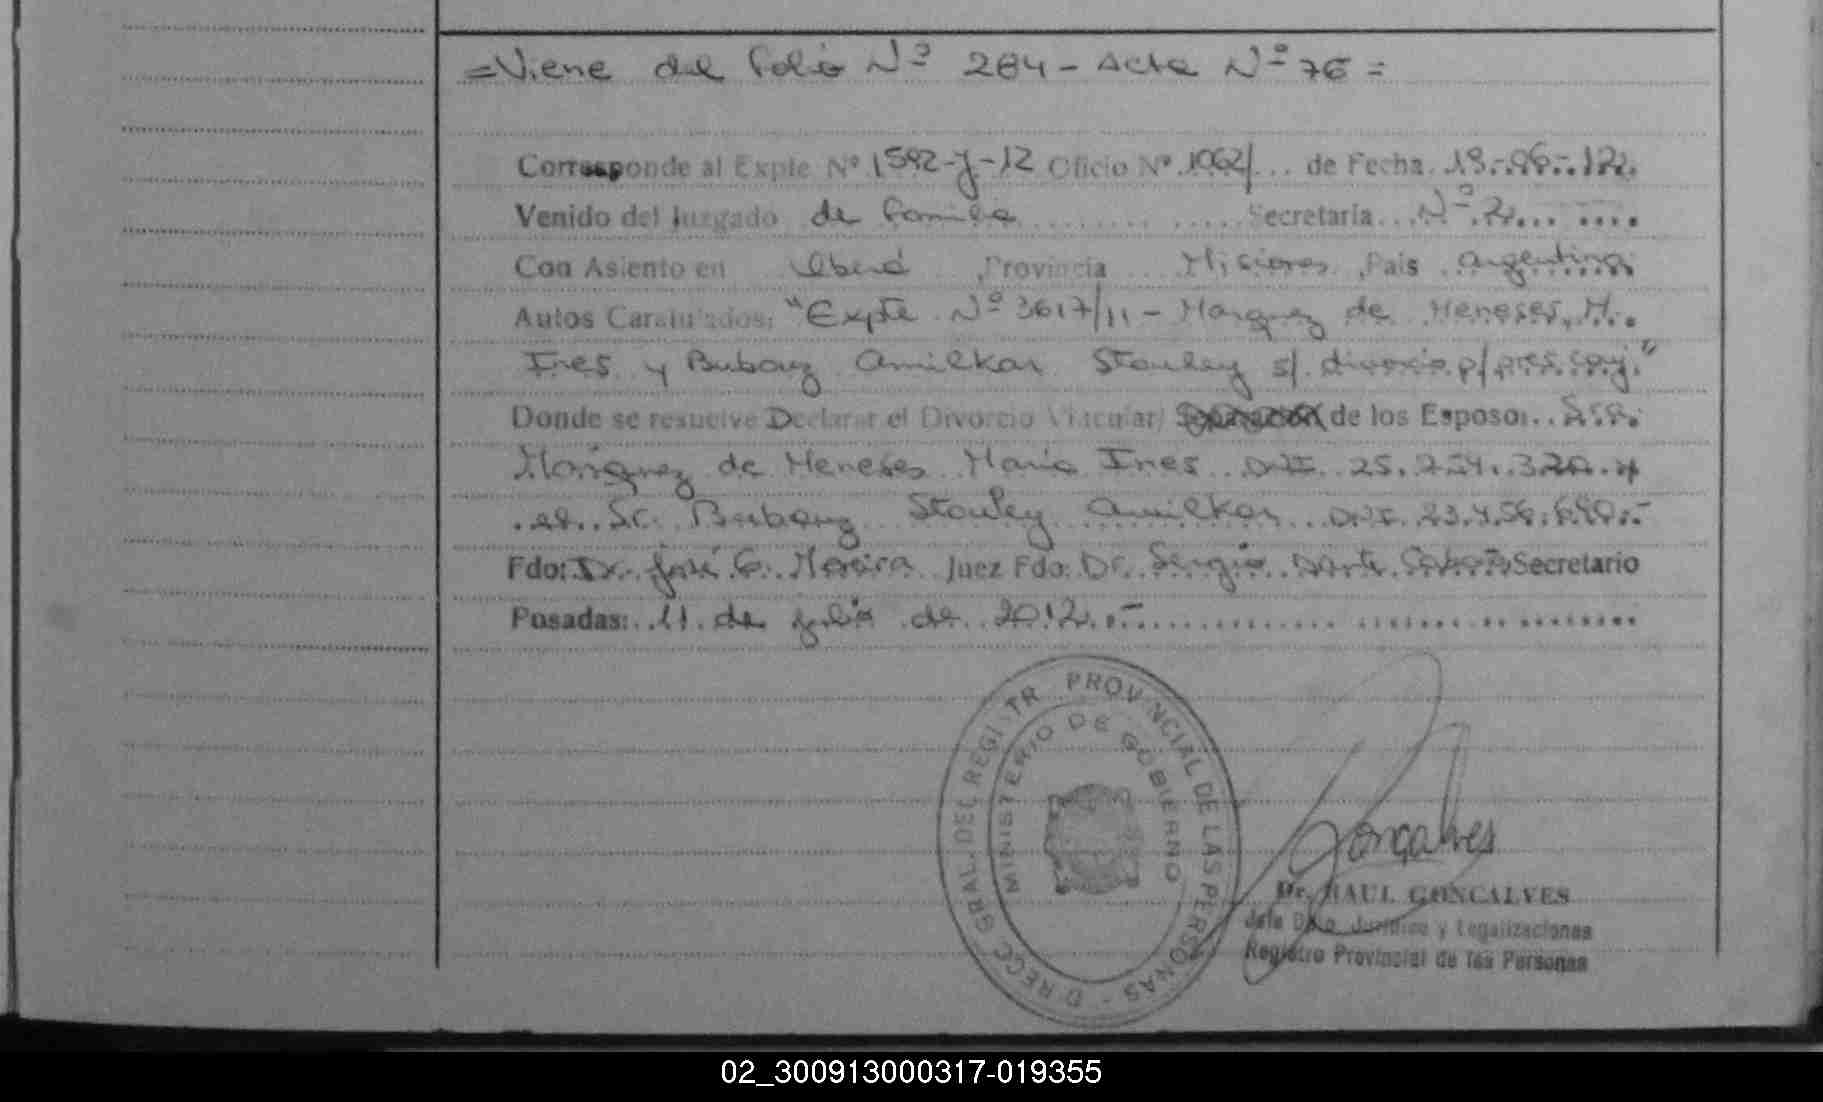 =Viene del folio Nº 284 - Acta Nº 76 =
Corresponde al Expte Nº 1592-y-12 Oficio Nº 1062/... de Fecha. 19.-06-.12.
Venido del Juzgado de Familia Secretaría Nº 2
Con Asiento en Oberá Provincia Misiones País Argentina
Autos Caratulados: "Expte Nº 3617/11 - Marquez de Meneses, M.
Ines y Bubanz Amilkar Stanley s/ divorcio p/ pres. conj."
Donde se resuelve Declarar el Divorcio Vincular/ Separación de los Esposos: Sra.
Marquez de Meneses María Ines DNI 25.254.320 y
el Sr. Bubanz Stanley Amilkar DNI 23.456.690.-
Fdo: Dr. José G. Moreira Juez Fdo: Dr. Sergio Dante Secretario
Posadas: 11 de julio de 2012.-
DIRECC. GRAL. DEL REGISTR PROVINCIAL DE LAS PERSONAS -
MINISTERIO DE GOBIERNO
Gonçalves
Dr. RAUL GONCALVES
Jefe Dpto. Jurídico y Legalizaciones
Registro Provincial de las Personas
02_300913000317-019355